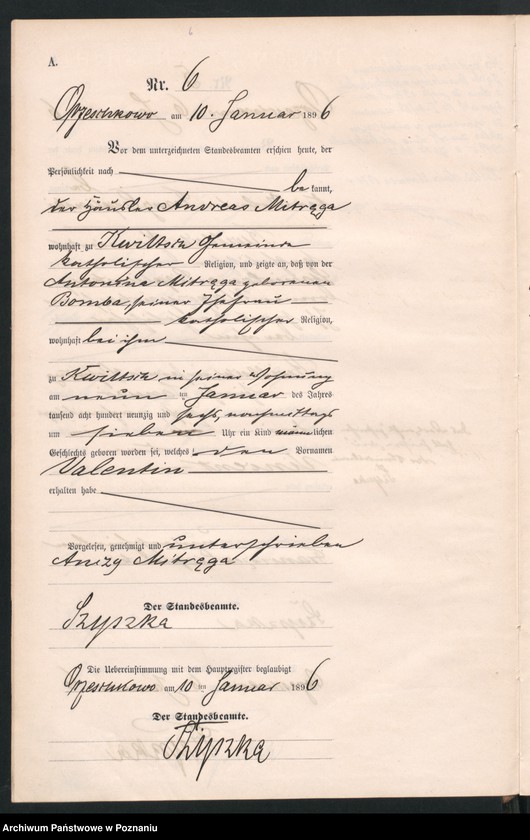 A.
Nr. 6
Orzeschkowo am 10. Januar 1896
Vor dem unterzeichneten Standesbeamten erschien heute, der
Persönlichkeit nach
bekannt,
der Häusler Andreas Mitręga
wohnhaft zu Kwiltsch Gemeinde
katholischer Religion, und zeigte an, daß von der
Antonina Mitręga geborenen
Bomba, seiner Ehefrau
katholischer Religion,
wohnhaft bei ihm
zu Kwiltsch in seiner Wohnung
am neun ten Januar des Jahres
tausend acht hundert neunzig und sechs, nachmittags
um sieben Uhr ein Kind männlichen
Geschlechts geboren worden sei, welches den Vornamen
Valentin
erhalten habe
Vorgelesen, genehmigt und unterschrieben
Mitręga
Der Standesbeamte.
Szyszka
Die Uebereinstimmung mit dem Hauptregister beglaubigt
Orzeschkowo am 10 ten Januar 1896
Der Standesbeamte.
Szyszka
Archiwum Państwowe w Poznaniu